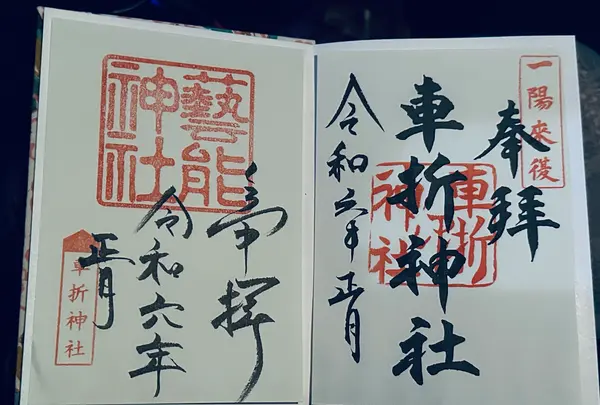 一陽来復
奉拝
車折神社
車折神社
令和六年正月
奉拝
藝能神社
令和六年
正月
車折神社